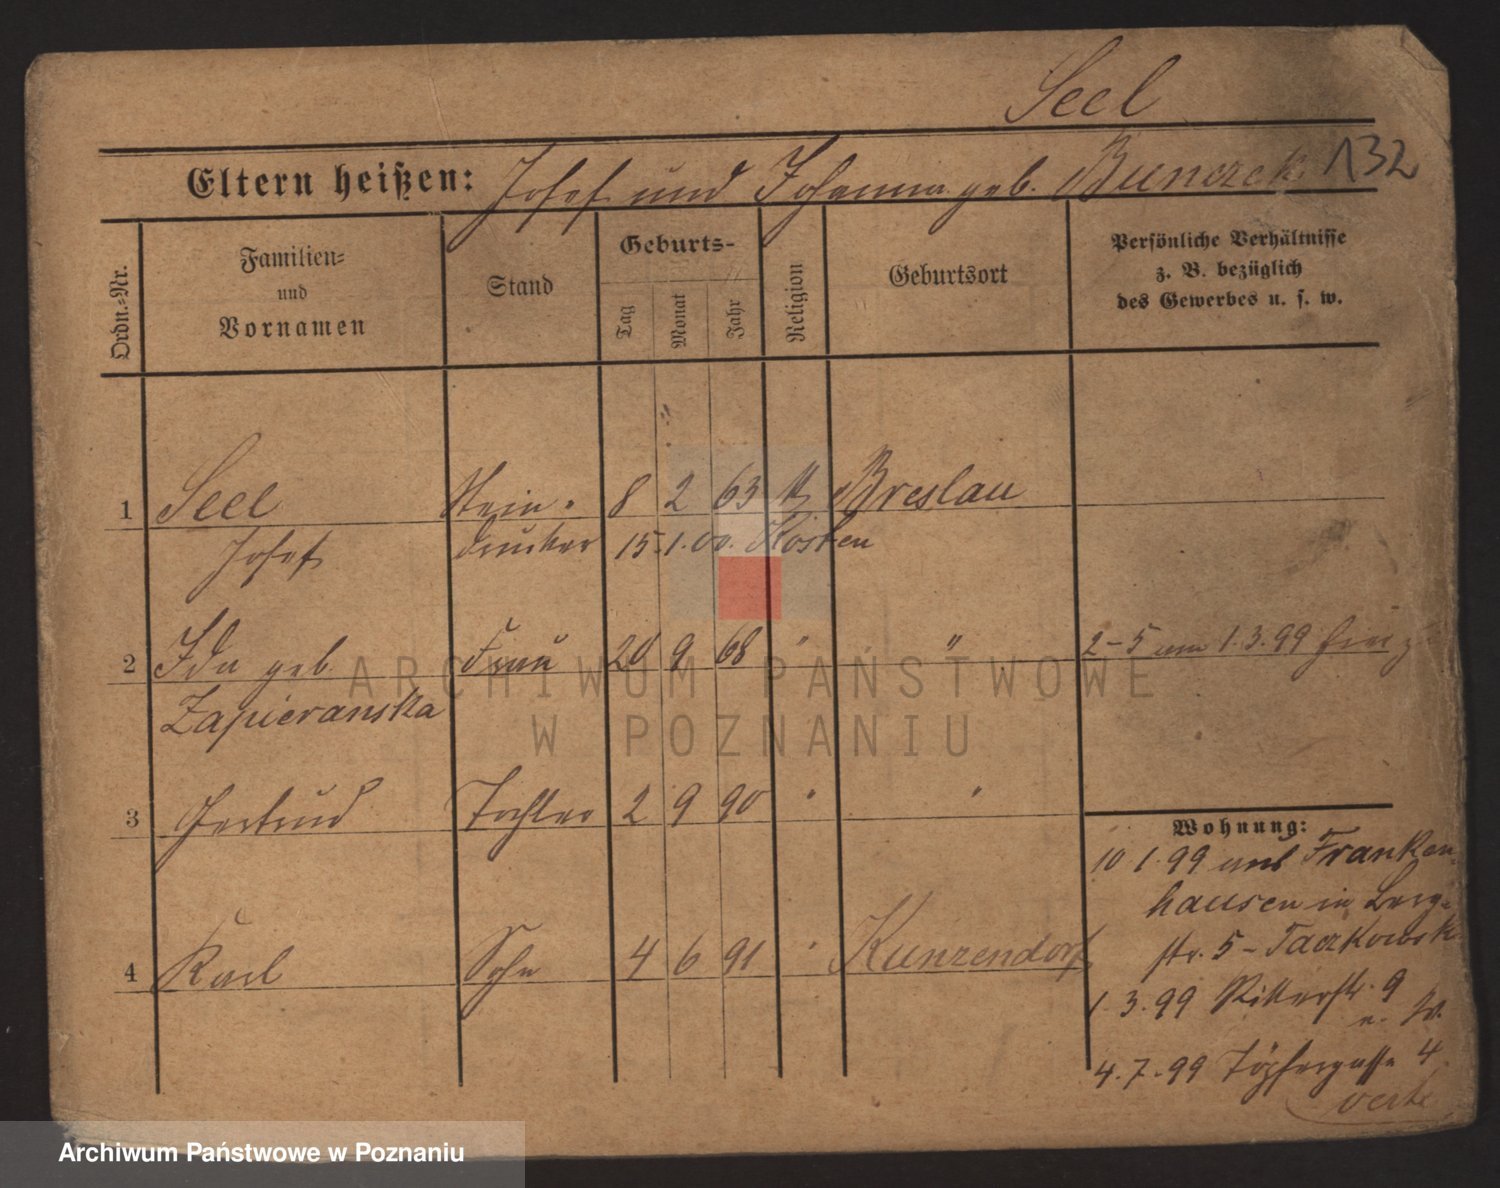 Seel
132
Eltern heißen: Josef und Johanna geb. Bunczek
Ordn.=Nr.
Familien=
und
Vornamen
Stand
Geburts-
Tag
Monat
Jahr
Religion
Geburtsort
Persönliche Verhältnisse
z. B. bezüglich
des Gewerbes u. s. w.
1 Seel Stein- 8 2 63 Breslau
Josef drucker 15.1.00. Kosten
2 Ida geb. Frau 20 9 68 " " 2-5 am 1.3.99
Zapieranska
3 Gertrud Tochter 2 9 90 " "
4 Karl Sohn 4 6 91 " Kunzendorf
Wohnung:
10 1.99 aus Franken-
hausen in Berg-
str. 5 - Taczkowsk
1.3.99 Ritterstr. 9
4.7.99 Töpfergasse 4
verte
ARCHIWUM PAŃSTWOWE
W POZNANIU
Archiwum Państwowe w Poznaniu